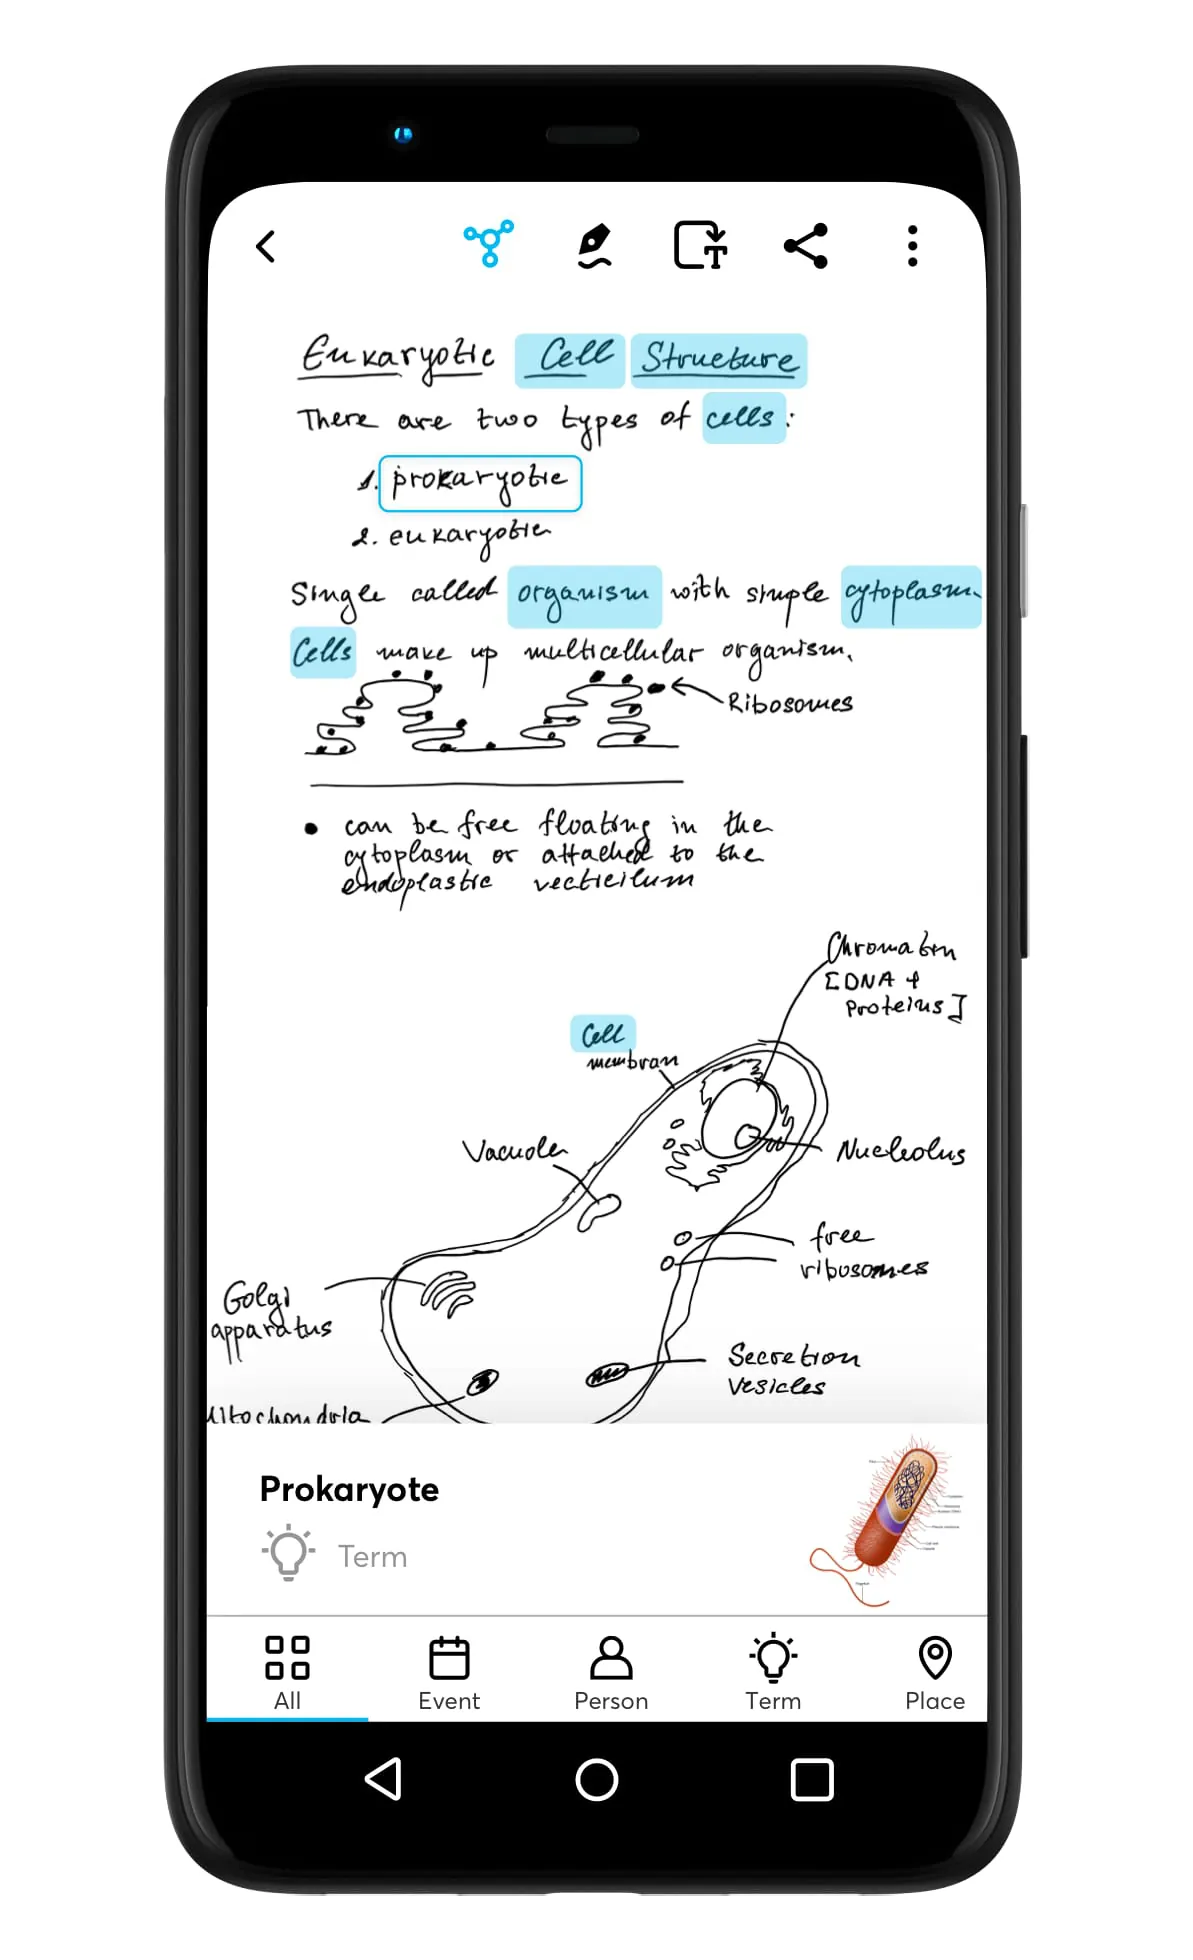 Eukaryotic Cell Structure
There are two types of cells:
1. prokaryotic
2. eukaryotic
Single called organism with simple cytoplasm.
Cells make up multicellular organism.
Ribosomes
• can be free floating in the
cytoplasm or attached to the
endoplastic vecticilum
Chromatin
[DNA +
Proteins]
Cell
membran
Vacuole
Nucleolus
free
ribosomes
Golgi
apparatus
Secretion
vesicles
Mitochondria
Prokaryote
Term
All Event Person Term Place